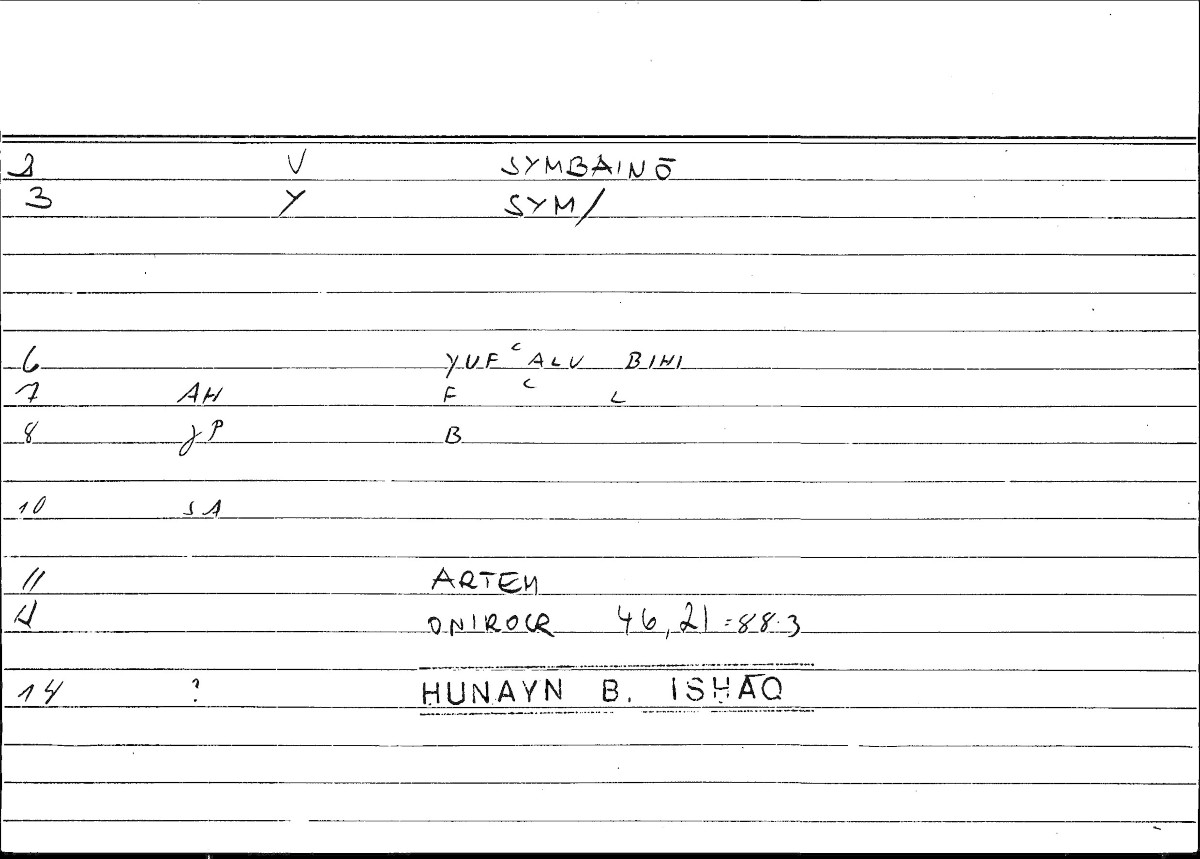 2 V SYMBAINŌ
3 Y SYM/
6 YUFʿALU BIHI
7 AH F ʿ L
8 JP B
10 SA
11 ARTEM
12 ONIROCR 46,21=88.3
14 ? HUNAYN B. ISHĀQ